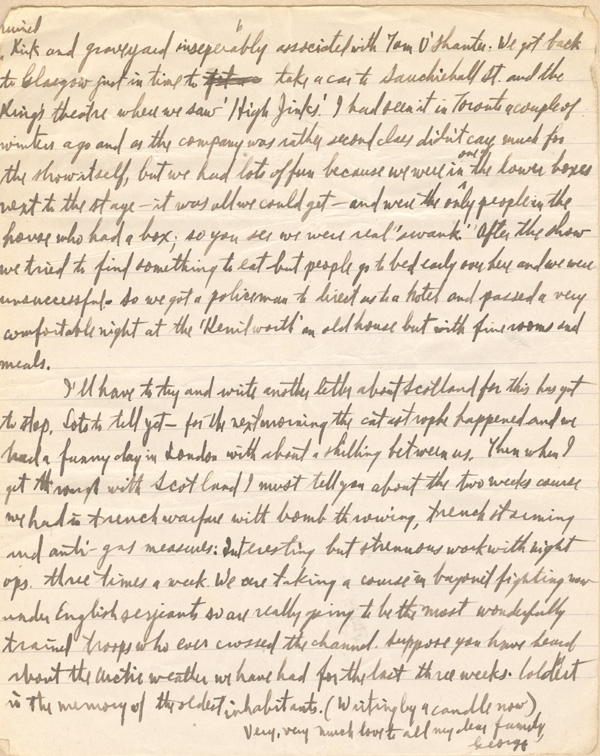 ruined
Kirk and graveyard inseperably associated with Tom O'Shanter. We got back
to Glasgow just in time to take a car to Sauchiehall St. and the
King's theatre where we saw 'High Jinks'. I had seen it in Toronto a couple of
winters ago and as the company was rather second class didn't care much for
the show itself, but we had lots of fun because we were in one of the lower boxes
next to the stage – it was all we could get – and were the only people in the
house who had a box; so you see we were real 'swank'. After the show
we tried to find something to eat but people go to bed early over here and we were
unsuccessful. So we got a policeman to direct us to a hotel and passed a very
comfortable night at the 'Kenilworth' an old house but with fine rooms and
meals.
I'll have to try and write another letter about Scotland for this has got
to stop. Lots to tell yet – for the next morning the catastrophe happened and we
had a funny day in London with about a shilling between us. Then when I
get through with Scotland I must tell you about the two weeks course
we had in trench warfare with bomb throwing, trench storming
and anti-gas measures: Interesting but strenuous work with night
ops. three times a week. We are taking a course in bayonet fighting now
under English serjeants so are really going to be the most wonderfully
trained troops who ever crossed the channel. Suppose you have heard
about the Arctic weather we have had for the last three weeks. Coldest
in the memory of the oldest inhabitants. (Writing by a candle now),
Very, very much love to all my dear family,
George